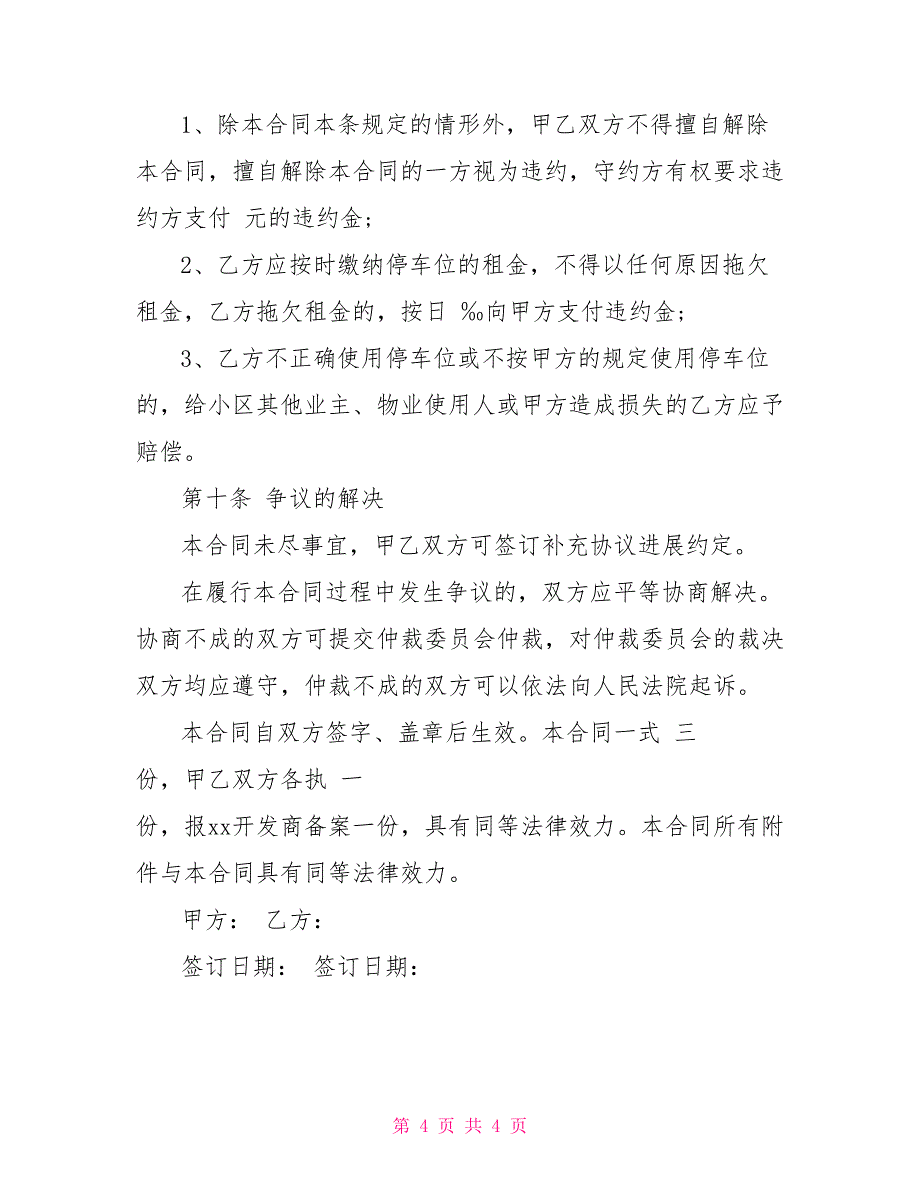 1、除本合同本条规定的情形外，甲乙双方不得擅自解除
本合同，擅自解除本合同的一方视为违约，守约方有权要求违
约方支付 元的违约金;
2、乙方应按时缴纳停车位的租金，不得以任何原因拖欠
租金，乙方拖欠租金的，按日 ‰向甲方支付违约金;
3、乙方不正确使用停车位或不按甲方的规定使用停车位
的，给小区其他业主、物业使用人或甲方造成损失的乙方应予
赔偿。
第十条 争议的解决
本合同未尽事宜，甲乙双方可签订补充协议进展约定。
在履行本合同过程中发生争议的，双方应平等协商解决。
协商不成的双方可提交仲裁委员会仲裁，对仲裁委员会的裁决
双方均应遵守，仲裁不成的双方可以依法向人民法院起诉。
本合同自双方签字、盖章后生效。本合同一式 三
份，甲乙双方各执 一
份，报xx开发商备案一份，具有同等法律效力。本合同所有附
件与本合同具有同等法律效力。
甲方： 乙方：
签订日期： 签订日期：
第 4 页 共 4 页